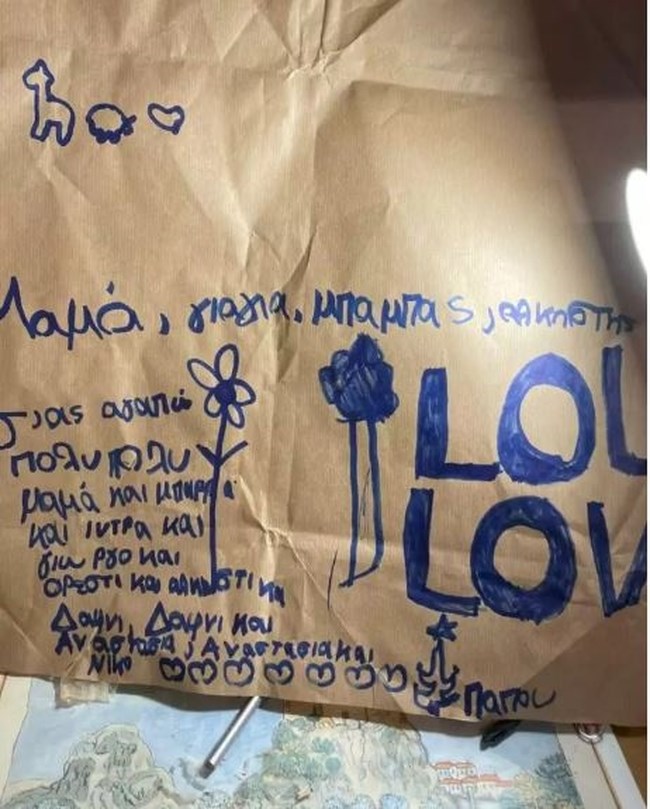 Μαμά, γιαγια, μπαμπας, αλκηστης
LOL
σας αγαπώ
πολυ πολυ
LOV
μαμά και μπαμπα
και ιντρα και
γιωργο και
ορεστι και αλκιστι και
Δαφνι, Δαφνι και
Αναστασια, Αναστασια και
Νικο
παπου